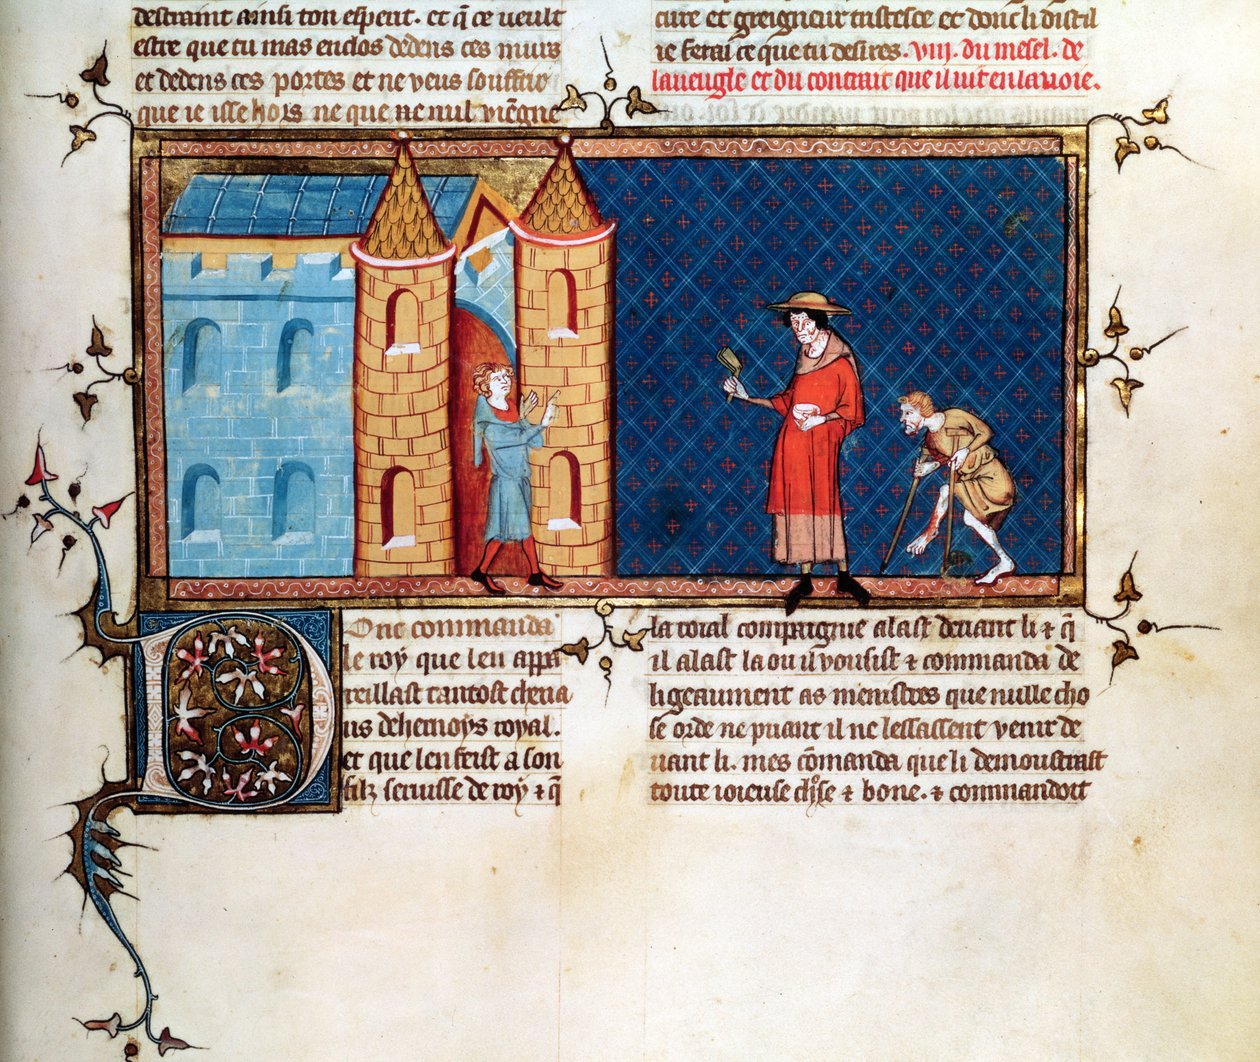 destraint ainsi ton esperit. et q̃ ce ueult
estre que tu mas enclos dedens ces murs
et dedens ces portes et ne veus souffrir
que ie isse hors ne que ne nul viẽgne
cure et greigneur tristesce et donc li distil
ie ferai ce que tu desires. viij. du mesel. de
laueugle et du contrait que il uit en la uoie.
Donc commanda
le roy que len appa
reillast tantost cheua
us de hernoys royal.
et que len feist a son
filz seruise de roy ⁊ q̃
la roial compaignie alast deuant li ⁊ q̃
il alast la ou il vousist ⁊ commanda de
ligeaument as menistres que nulle cho
se orde ne puant il ne lessassent venir de
uant li. mes cõmanda que li demoustrast
toute ioieuse chose ⁊ bone. ⁊ commandoit